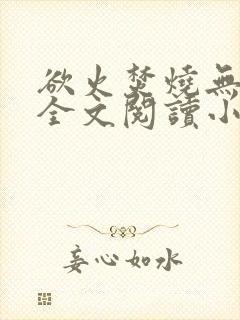 欲火焚燒無
全文閱讀小
妄心如水